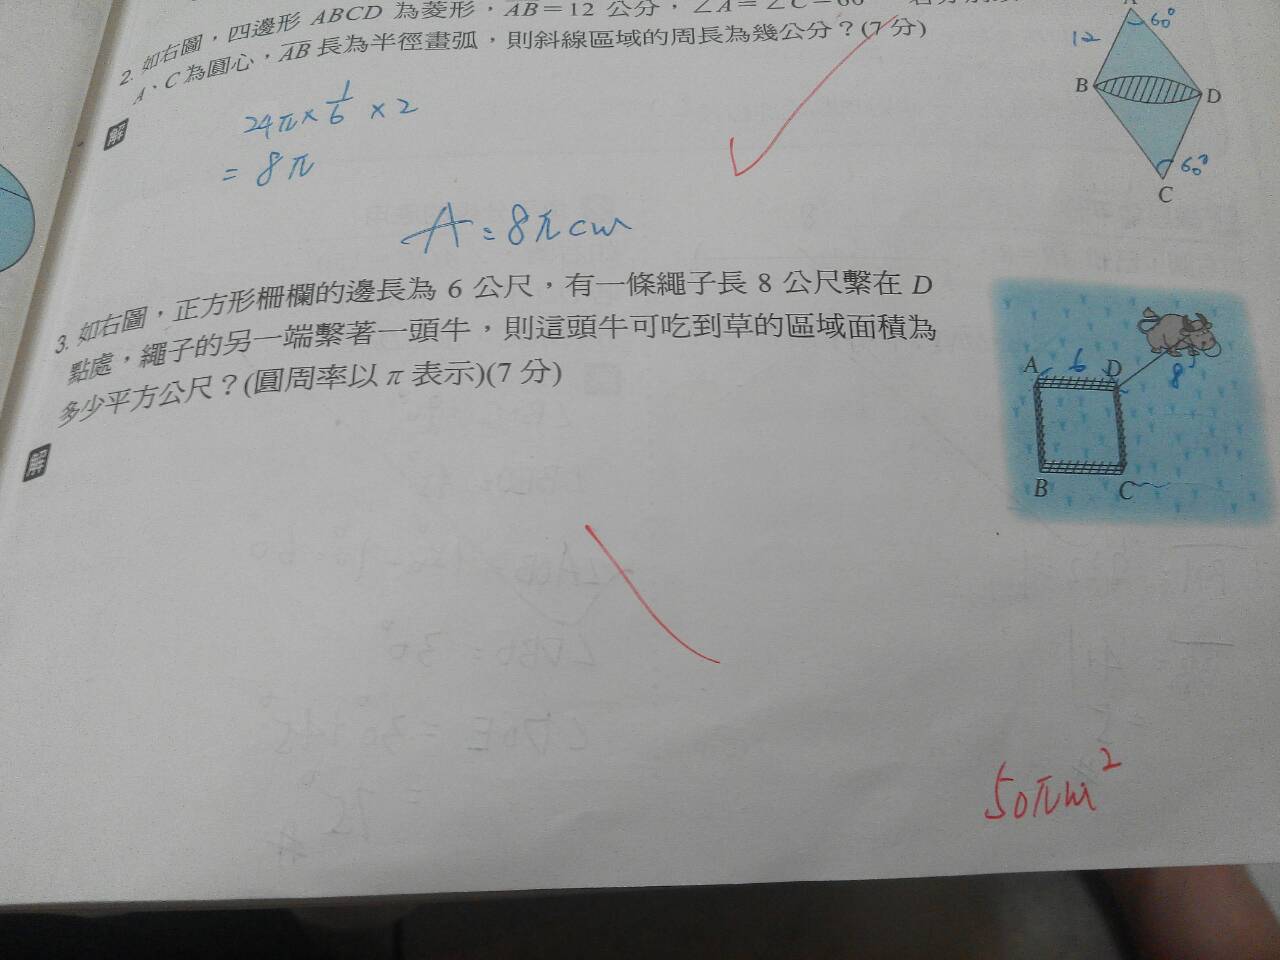 2. 如右圖，四邊形 ABCD 為菱形，AB＝12 公分，∠A＝∠C＝60
A、C 為圓心，AB 長為半徑畫弧，則斜線區域的周長為幾公分？(7 分)
解
24π×1/6×2
= 8π
A = 8π cm
A
60°
12
B
D
60°
C
3. 如右圖，正方形柵欄的邊長為 6 公尺，有一條繩子長 8 公尺繫在 D
點處，繩子的另一端繫著一頭牛，則這頭牛可吃到草的區域面積為
多少平方公尺？(圓周率以 π 表示)(7 分)
解
A
6
D
8
B
C
50πm²